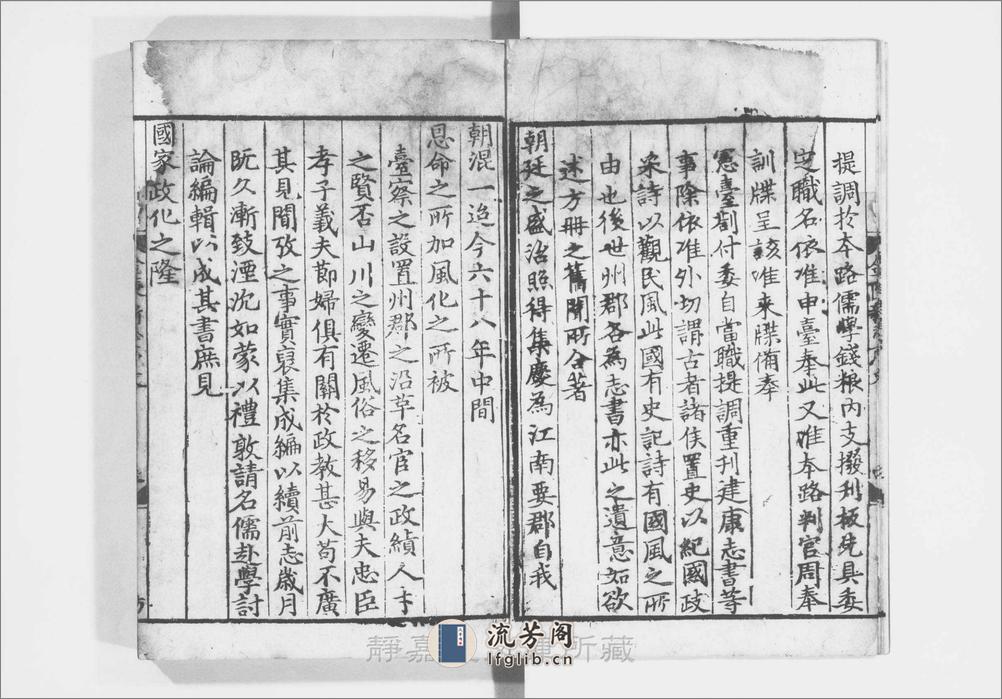 提調於本路儒學錢粮內支撥刋板先具委
定職名依准申臺奉此又准本路判官周奉
訓牒呈該准來牒備奉
憲臺劄付委自當職提調重刋建康志書等
事除依准外切謂古者諸侯置史以紀國政
采詩以觀民風此國有史記詩有國風之所
由也後世州郡各為志書亦此之遺意如欲
述方冊之舊聞所合著
朝廷之盛治照得集慶為江南要郡自我
朝混一迨今六十八年中間
恩命之所加風化之所被
臺察之設置州郡之沿革名官之政績人才
之賢否山川之變遷風俗之移易與夫忠臣
孝子義夫節婦俱有關於政教甚大苟不廣
其見聞攷之事實裒集成編以續前志歲月
既久漸致湮沈如蒙以禮敦請名儒赴學討
論編輯以成其書庶見
國家政化之隆
靜嘉 所藏
流芳阁
lfglib.cn